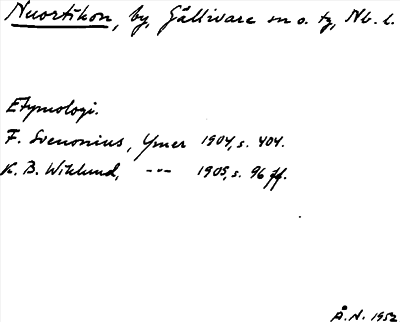 Nuortikon, by, Gällivare sn o. tg, Nb. l.
Etymologi.
F. Svenonius, Ymer 1904, s. 404.
K. B. Wiklund, -"- 1905, s. 96 ff.
Å.N. 1952